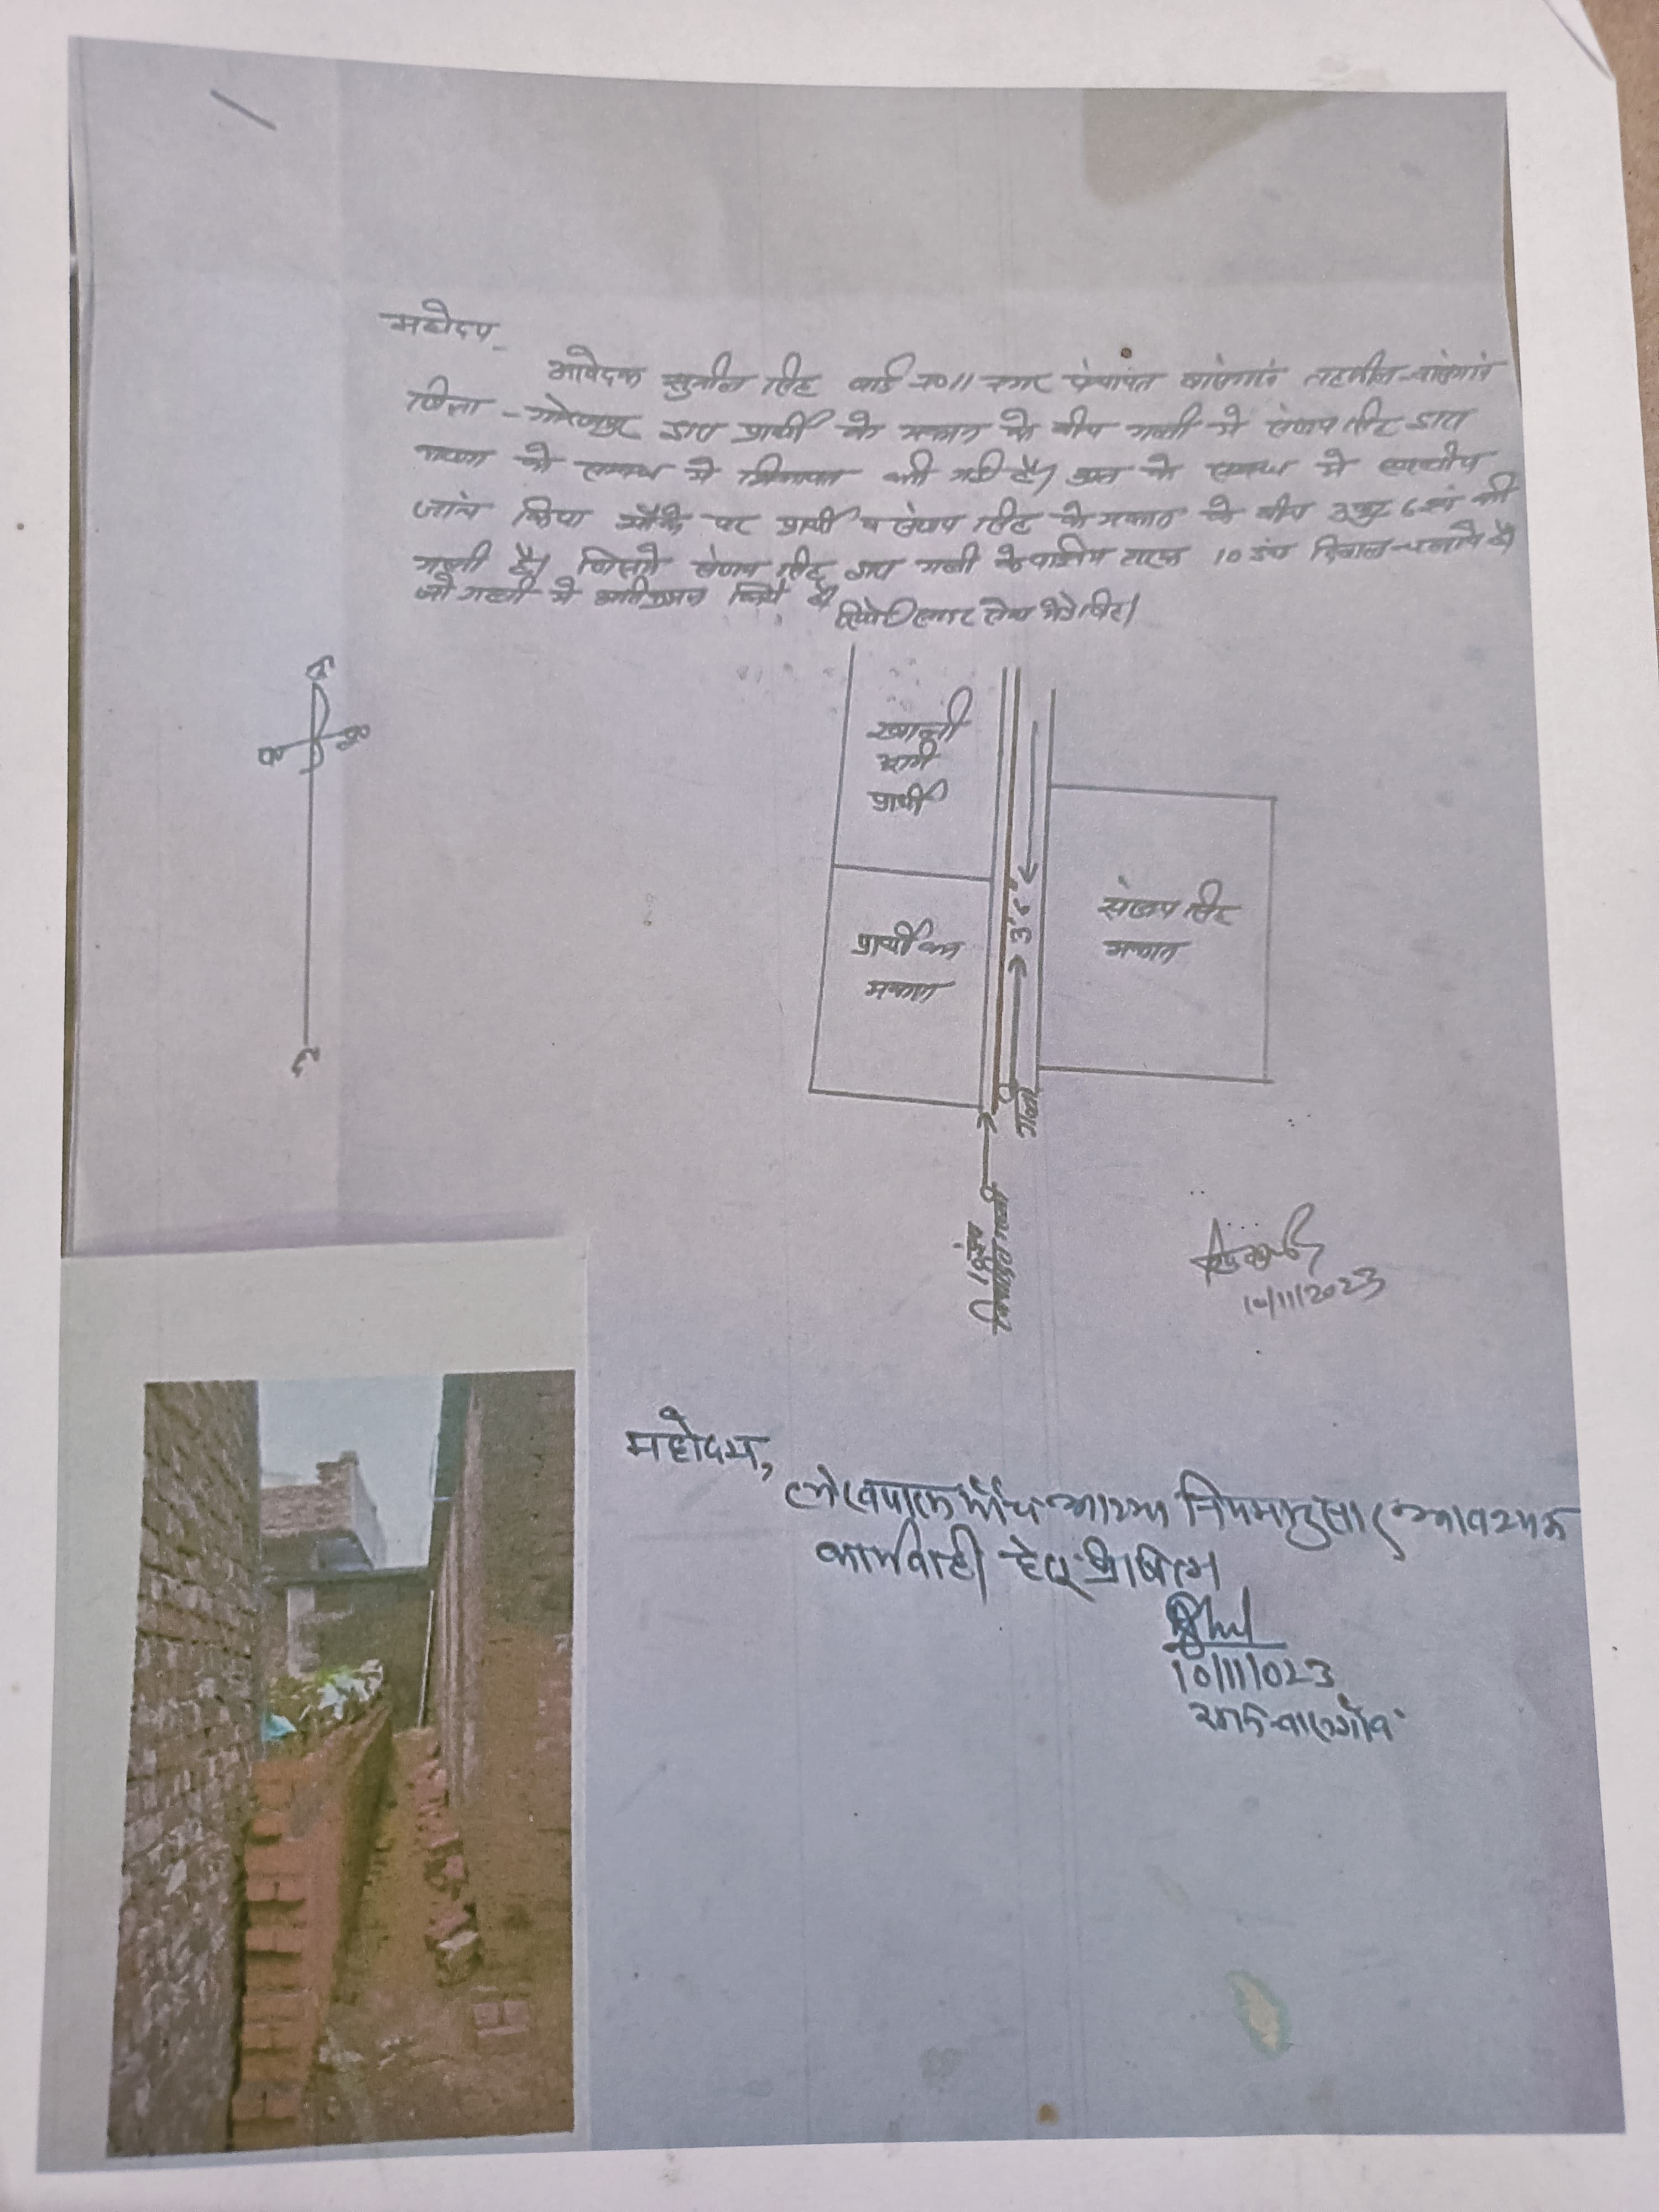 महोदय,
आवेदक सुनील सिंह वार्ड न०11 नगर पंचायत बांसगांव तहसील-बांसगांव
जिला - गोरखपुर द्वारा प्रार्थी के मकान के बीच गली में संजय सिंह द्वारा
के सम्बन्ध में शिकायत की गयी है। उक्त के सम्बन्ध में स्थलीय
जांच किया मौके पर प्रार्थी व संजय सिंह के मकान के बीच 3 फुट 6 इंच की
गली है। जिसमें संजय सिंह द्वारा गली के 10 इंच दिवाल चलाये है।
जो गली में अतिक्रमण किये है।
रिपोर्ट सादर सेवा में प्रेषित।
उ
प
पू
द
खाली
भूमि
प्रार्थी
प्रार्थी का
मकान
3'6"
संजय सिंह
मकान
गली
10 इंच
गली
10/11/2023
महोदय,
लेखपाल जाँच आख्या नियमानुसार आवश्यक
कार्यवाही हेतु प्रेषित
10/11/023
बांसगाँव